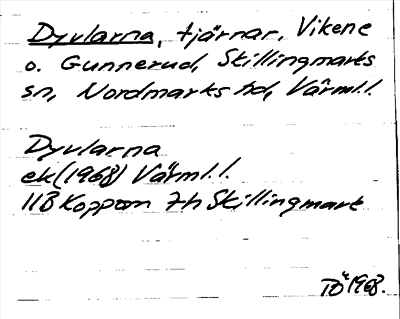 Dyvlarna, tjärnar, Vikene
o. Gunnerud, Skillingmarks
sn, Nordmarks hd, Värml.l.
Dyvlarna
ek (1968) Värml.l.
11B Koppom 7h Skillingmark
TÖ 1968.